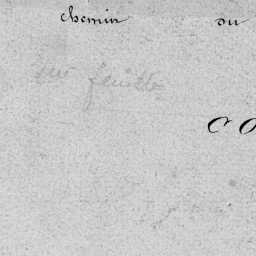 chemin ou
une feuille
CO